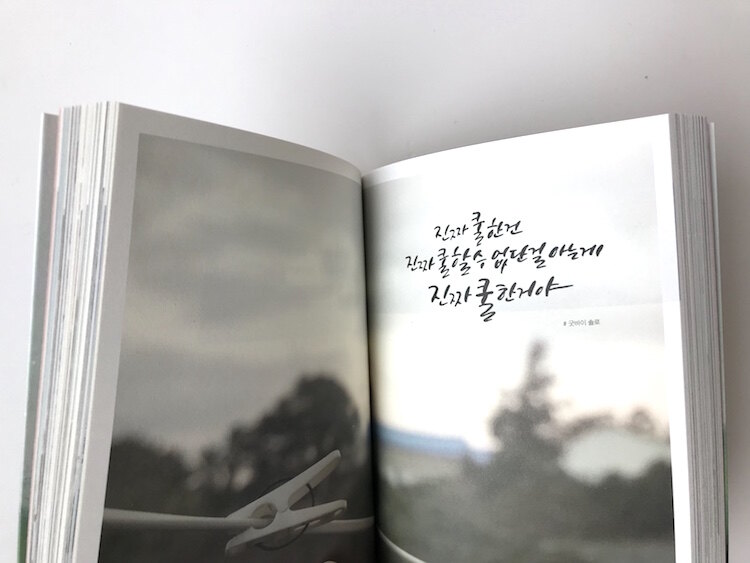 진짜 쿨한건
진짜 쿨할 수 없단걸 아는게
진짜 쿨한거야
# 굿바이 솔로